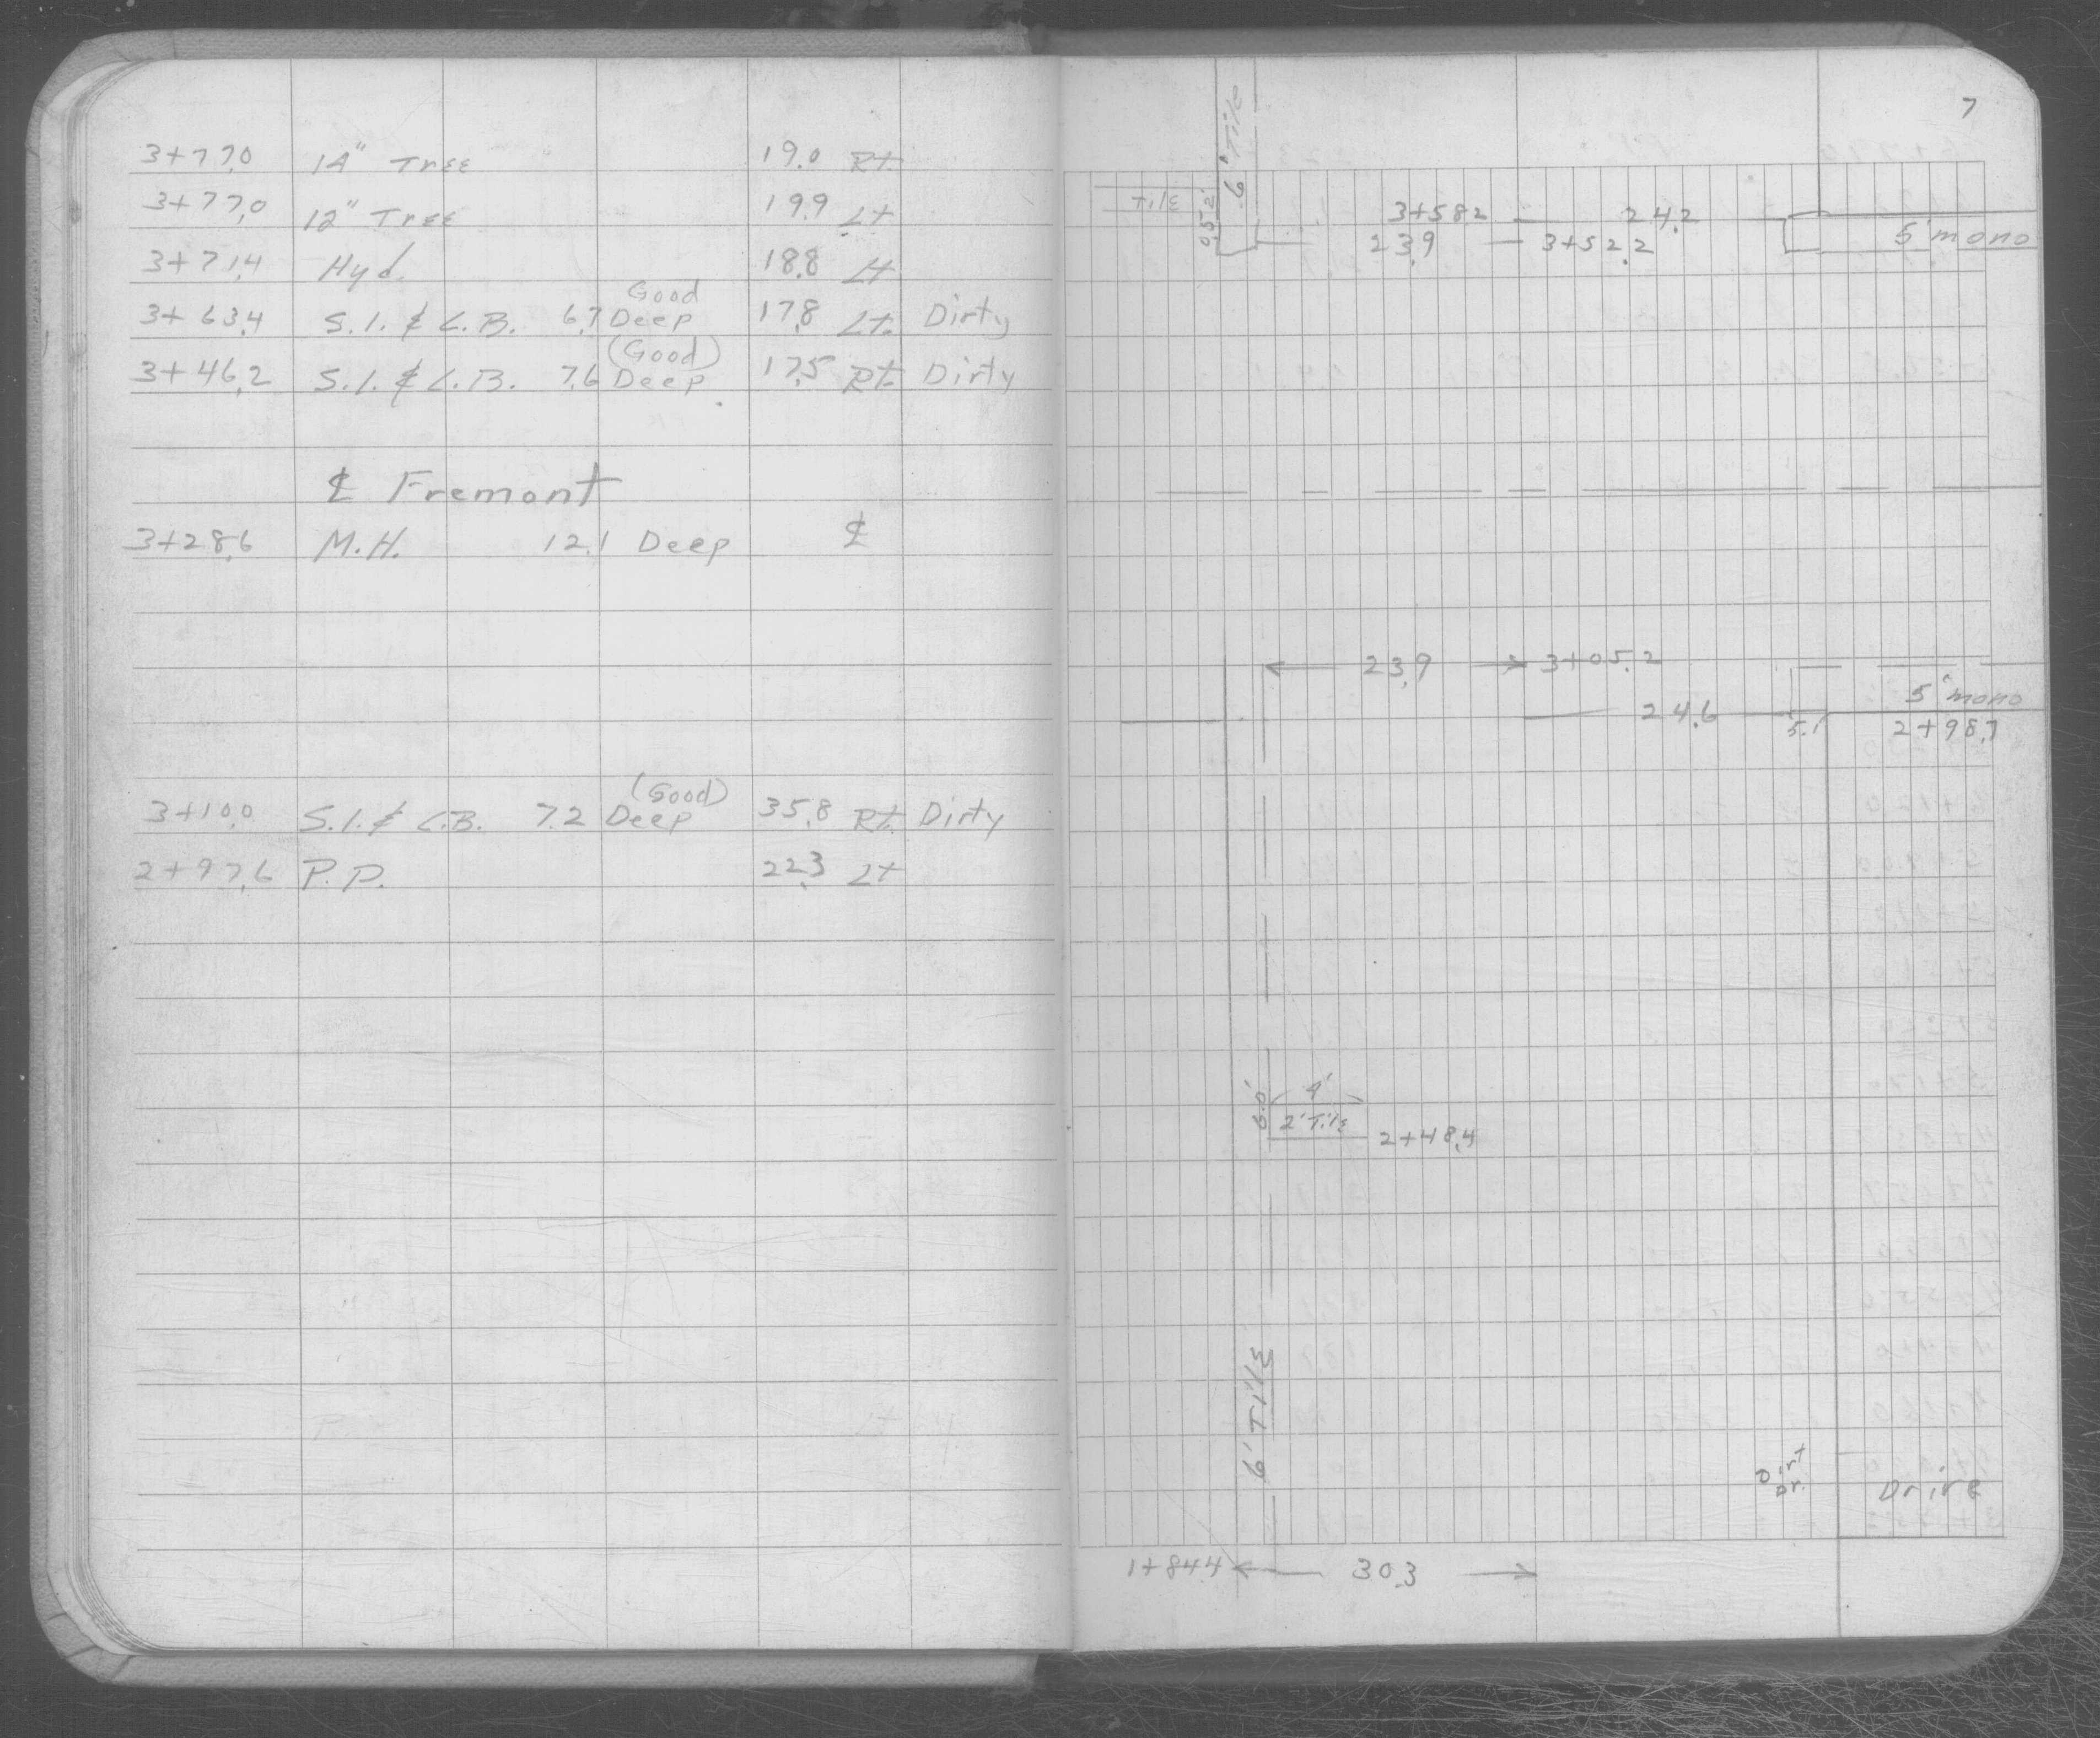 3+77.0 14" Tree 19.0 Rt.
3+77.0 12" Tree 19.9 Lt
3+71.4 Hyd. 18.8 Lt
3+63.4 S.I. & C.B. 6.7 Good Deep 17.8 Lt. Dirty
3+46.2 S.I. & C.B. 7.6 (Good) Deep 17.5 Rt. Dirty
℄ Fremont
3+28.6 M.H. 12.1 Deep ℄
3+10.0 S.I. & C.B. 7.2 (Good) Deep 35.8 Rt. Dirty
2+97.6 P.P. 22.3 Lt
7
6' Tile
Tile
3+58.2 24.2
23.9 3+52.2 5' mono
23.9 3+05.2
5' mono
24.6 5.1 2+98.7
4'
6.0' 2' Tile 2+48.4
6' Tile
Dirt Dr. Drive
1+84.4 30.3